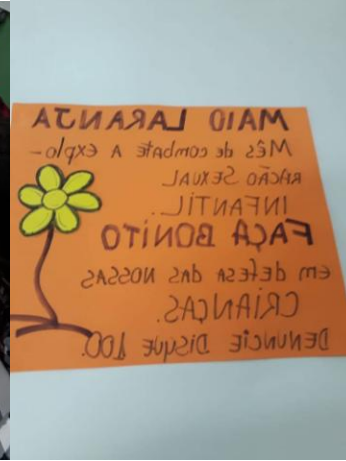 MAIO LARANJA
Mês de combate A explo-
RAÇÃO SEXUAL
INFANTIL.
FAÇA BONITO
em defesa das NOSSAS
CRIANÇAS.
DENUNCIE DISQUE 100.